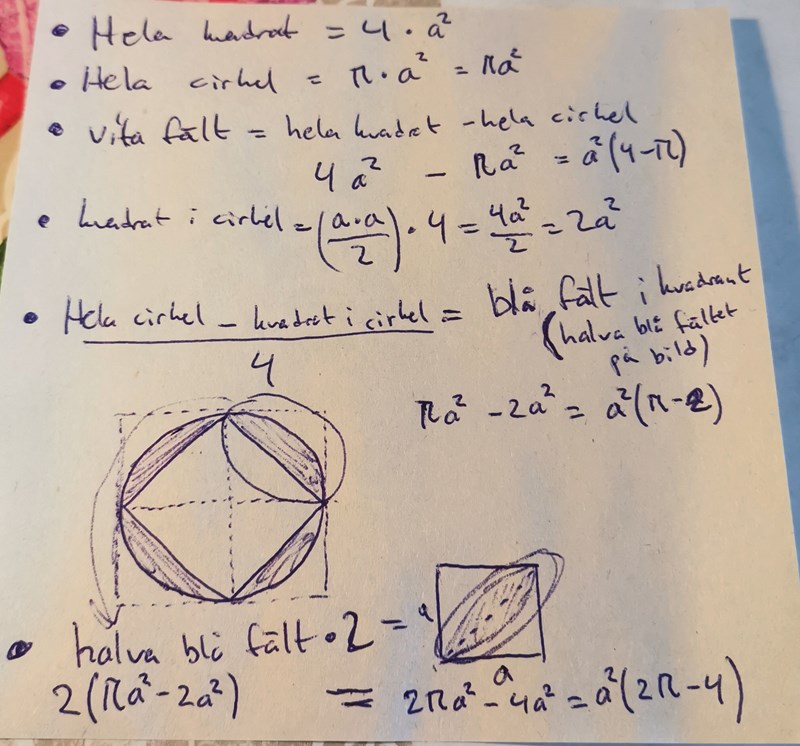 • Hela kvadrat = 4 · a²
• Hela cirkel = π · a² = πa²
• vita fält = hela kvadrat - hela cirkel
4a² - πa² = a²(4-π)
• kvadrat i cirkel = (a·a/2) · 4 = 4a²/2 = 2a²
• Hela cirkel - kvadrat i cirkel / 4 = blå fält i kvadrant
(halva blå fältet
på bild)
πa² - 2a² = a²(π-2)
• halva blå fält · 2 =
a
a
2(πa² - 2a²) = 2πa² - 4a² = a²(2π-4)